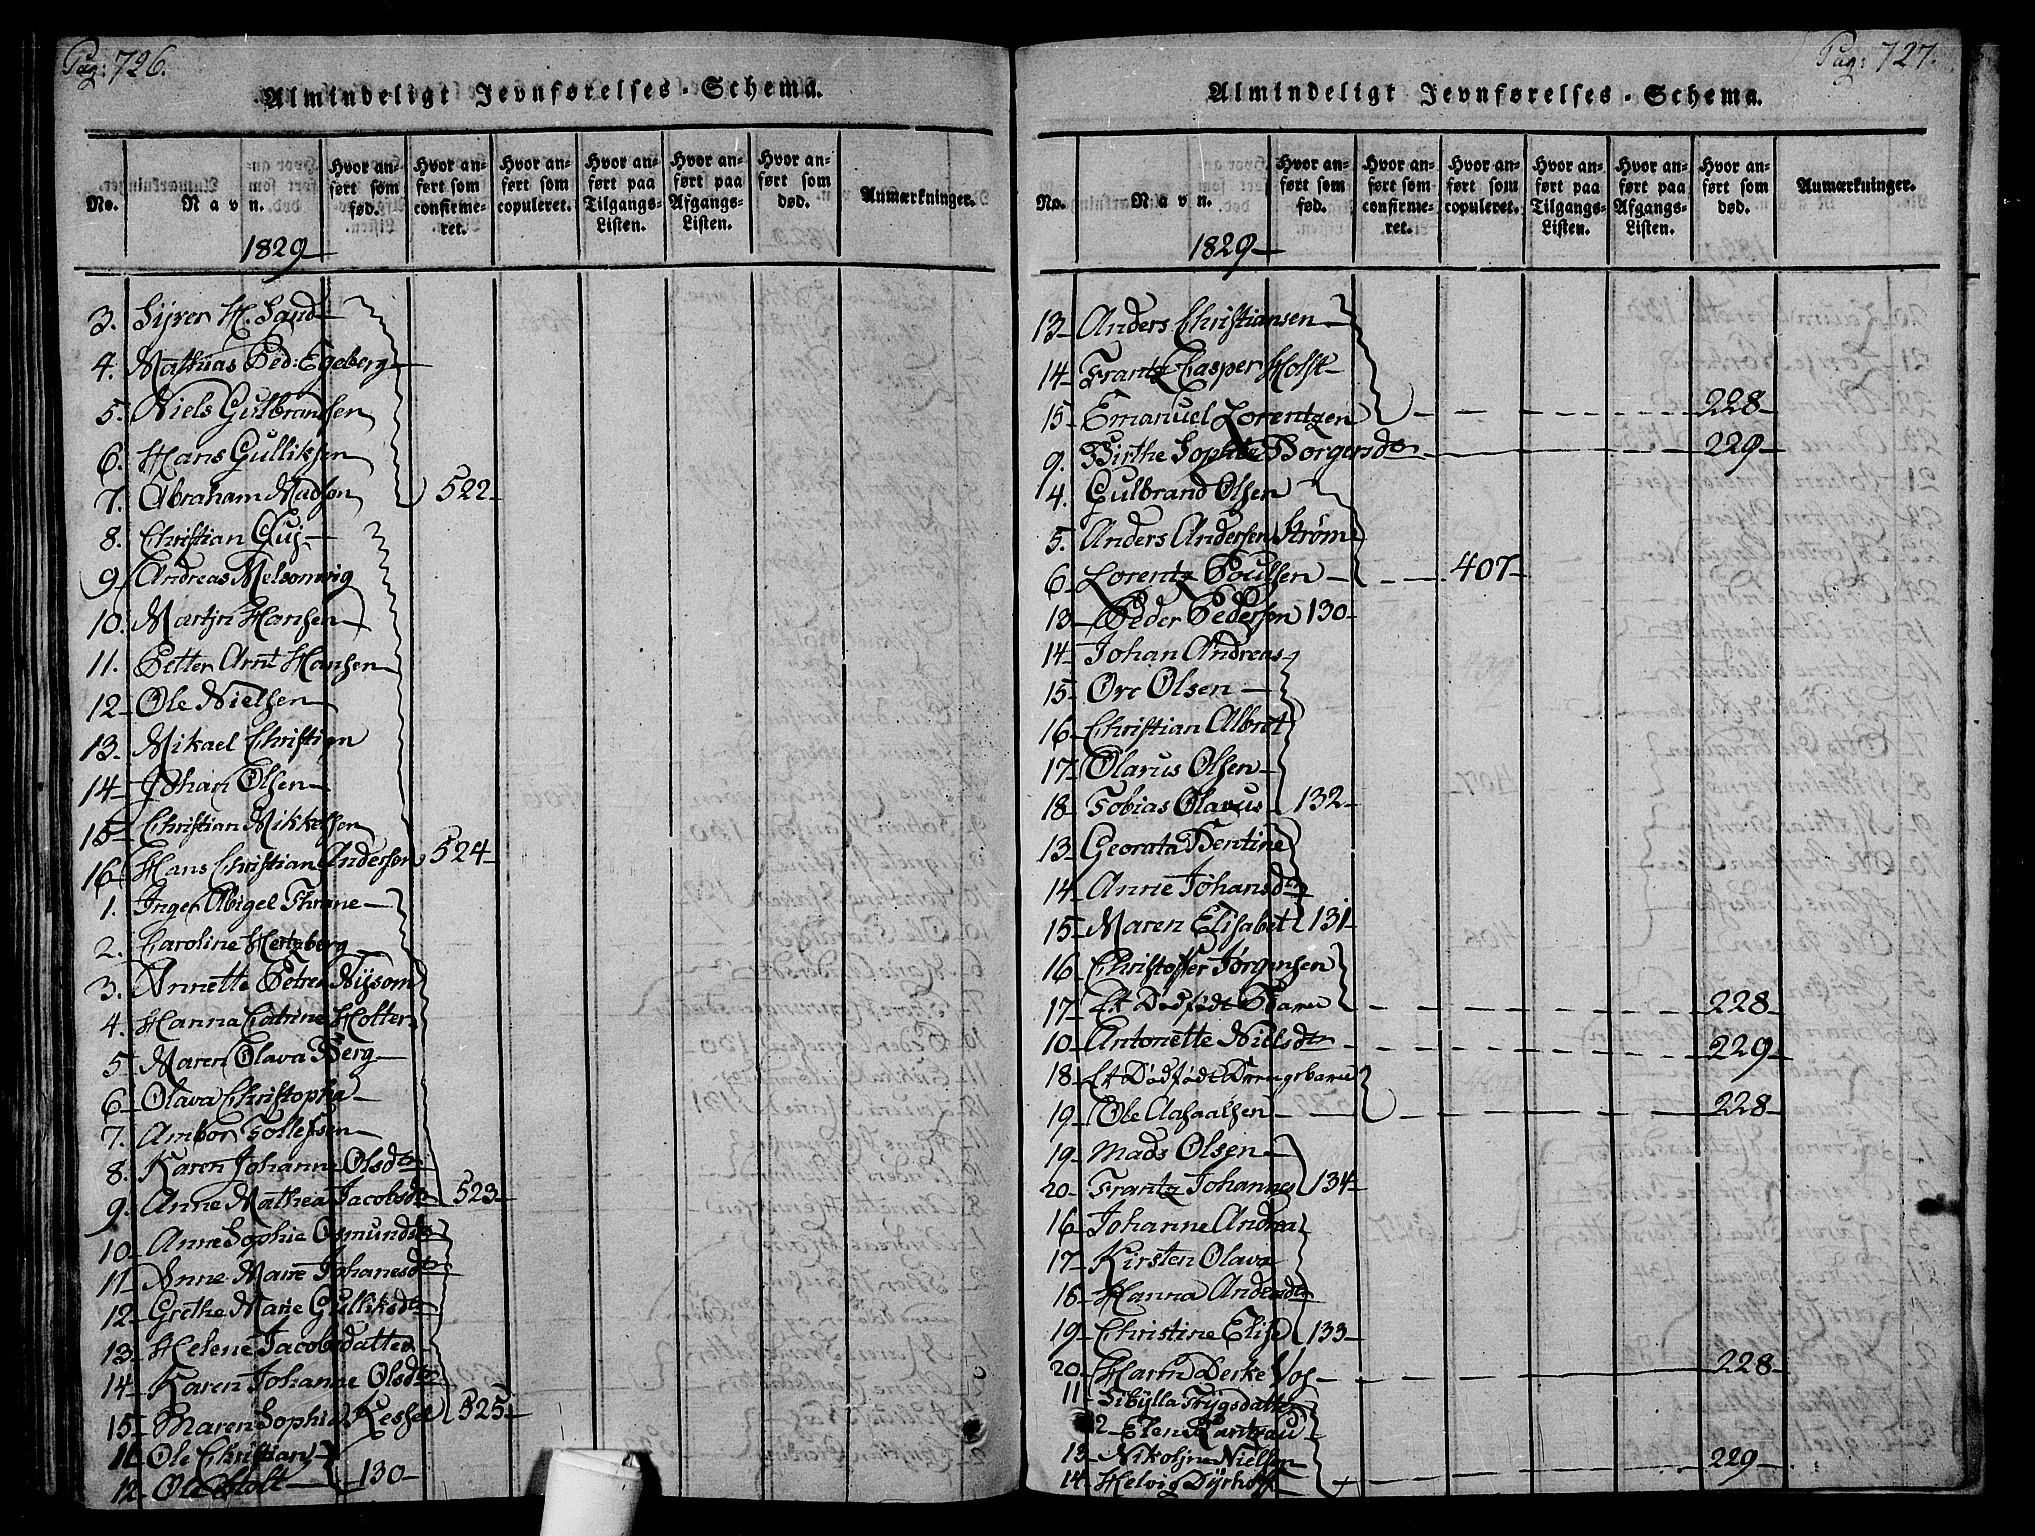 Pag: 726.
Almindeligt Jevnførelses-Schema.
No.
Navn.
Hvor anført som fød.
Hvor anført som confirmeret.
Hvor anført som copuleret.
Hvor anført paa Tilgangs-Listen.
Hvor anført paa Afgangs-Listen.
Hvor anført som død.
Anmærkninger.
1829
3. Sijrer H. Sand
4. Mathias Ped: Egeberg
5. Niels Gulbrandsen
6. Hans Gulliksen
7. Abraham Madsen 522
8. Christian Guj
9. Andreas Melsomvig
10. Martjn Hansen
11. Petter Arnt Hansen
12 Ole Nielsen
13. Mikael Christian
14 Johan Olsen
15 Christian Mikkelsen
16 Hans Christian Andersen 524
1. Inger Abigel Thrane
2. Caroline Hertzberg
3. Annette Petrea Nijsom
4. Hanna Catrine Holter
5. Maren Olava Berg
6 Olava Christopha
7. Ambor Tollefsen
8. Karen Johanne Olsdtr
9. Anne Mathea Jacobsdtr 523
10 Anne Sophie Osmundsdtr
11 Anne Marie Johanesdtr
12 Grethe Marie Gulliksdtr
13 Helene Jacobsdatter
14 Karen Johanne Olsdtr
15 Maren Sophie Kessel 525
11 Ole Christian
12 Ole Holt 130
Pag: 727.
Almindeligt Jevnførelses-Schema.
No.
Navn.
Hvor anført som fød.
Hvor anført som confirmeret.
Hvor anført som copuleret.
Hvor anført paa Tilgangs-Listen.
Hvor anført paa Afgangs-Listen.
Hvor anført som død.
Anmærkninger.
1829
13 Anders Christiansen
14 Frantz Casper Holst
15 Emanuel Lorentzen 228
9. Birthe Sophie Borgersdtr 229
4. Gulbrand Olsen
5. Anders Andersen Strøm
6 Lorentz Poulsen 407
13 Peder Pedersen 130
14 Johan Andreas
15 Ore Olsen
16 Christian Albret
17 Olarus Olsen
18 Tobias Olavus 132
13 Georata Bentine
14 Anne Johansdtr
15 Maren Elisabet 131
16 Christoffer Jørgensen
17 Et Dødfødt Barn 228
10 Antonette Nielsdtr 229
18 Et Dødfødt Drengebarn
19 Ole Aasaalsen 228
19 Mads Olsen
20 Frantz Johannes 134
16 Johanne Andrea
17 Kirsten Olava
18 Hanna Andersdtr
19 Christine Elise 133
20 Harm Derke Vos 228
11 Sibylla Trygsdatter
12 Elen Rantzau
13 Nikoljne Nielsen
14 Helvig Dyrhoff 229